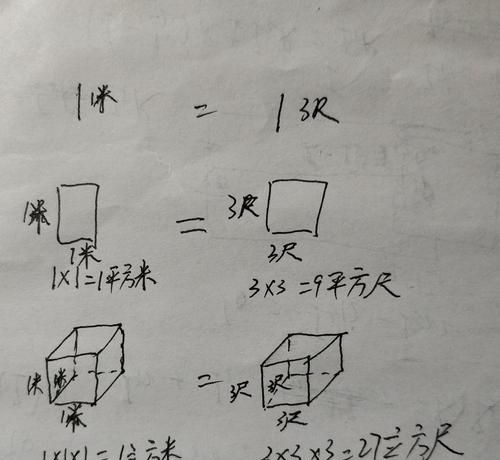 1米 = 1 3尺
1米 = 3尺
1米 3尺
1×1=1平方米 3×3=9平方尺
1米 1米 = 3尺 3尺
1米 3尺
1×1×1=1立方米 3×3×3=27立方尺